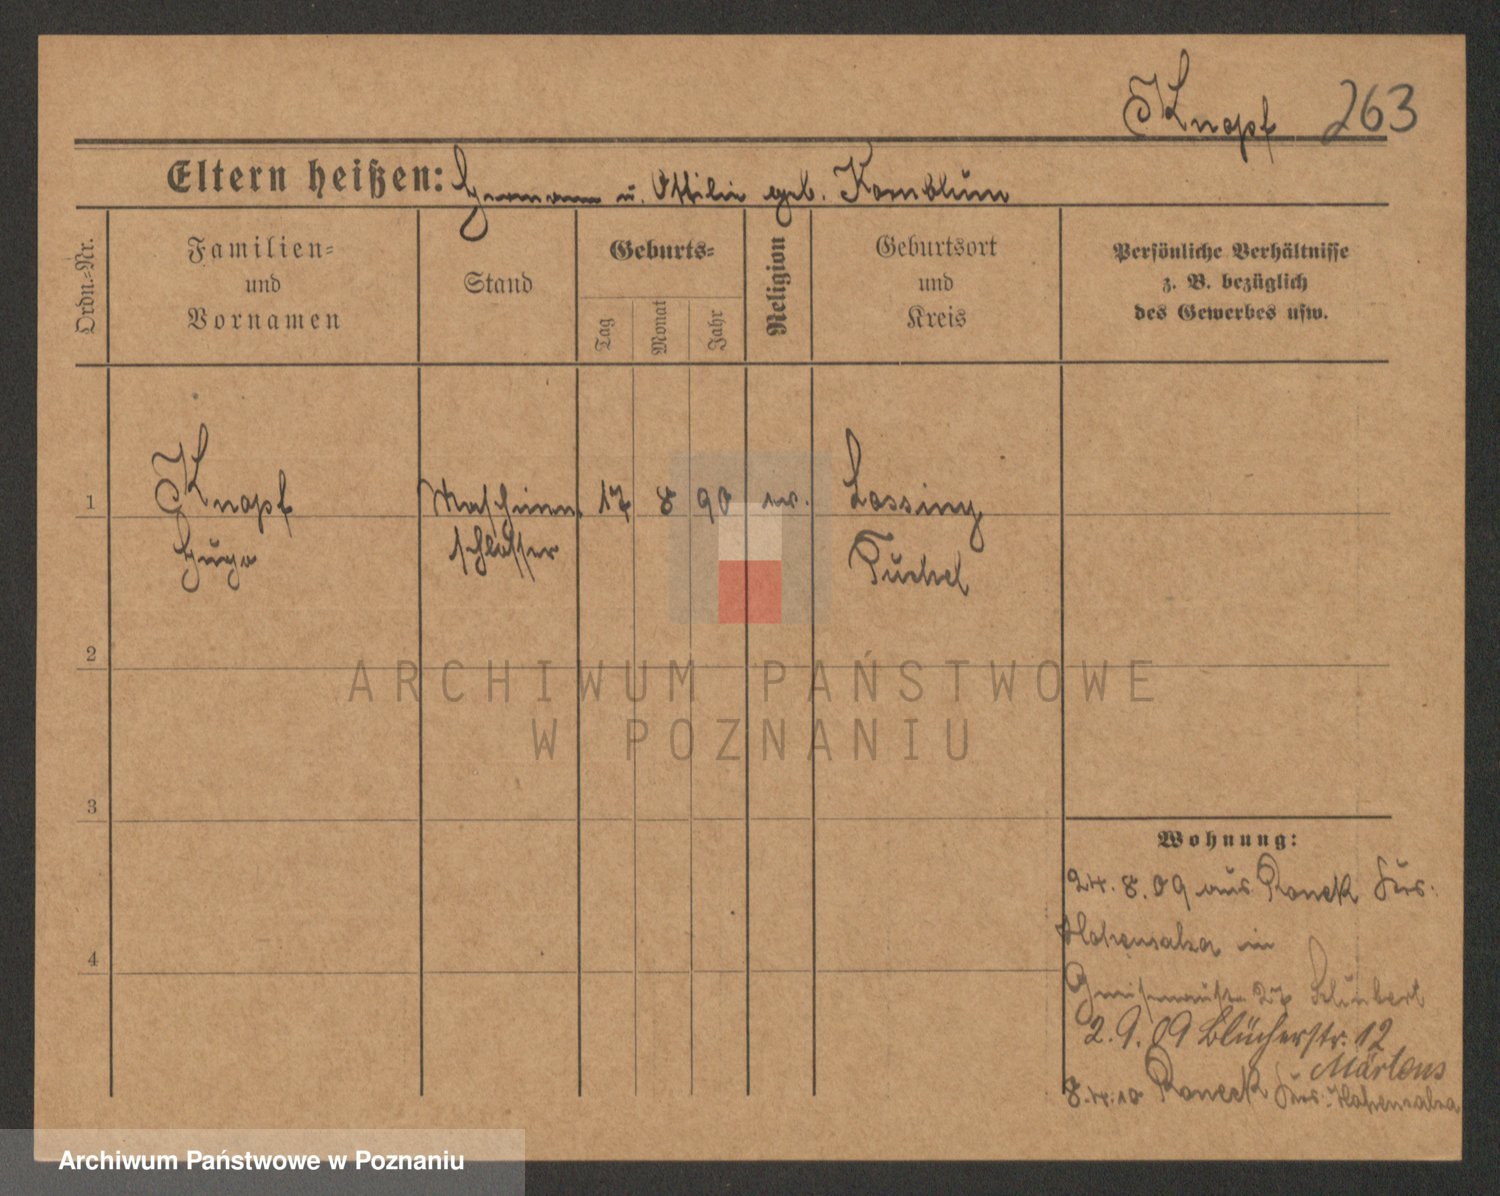 Knopf 263
Eltern heißen: Hermann u. Ottilie geb. Kornblum
Ordn.=Nr.
Familien=
und
Vornamen
Stand
Geburts=
Tag
Monat
Jahr
Religion
Geburtsort
und
Kreis
Persönliche Verhältnisse
z. B. bezüglich
des Gewerbes usw.
1
Knopf
Hugo
Maschinen
schlosser
17 8 90 ev.
Lossiny
Tuchel
2
ARCHIWUM PAŃSTWOWE
W POZNANIU
3
Wohnung:
24.8.09 aus Roneck Krs.
Hohensalza in
4
Gneisenaustr. 27 Schubert
2.9.09 Blücherstr. 12
Märtens
8.4.10 Roneck Krs. Hohensalza
Archiwum Państwowe w Poznaniu